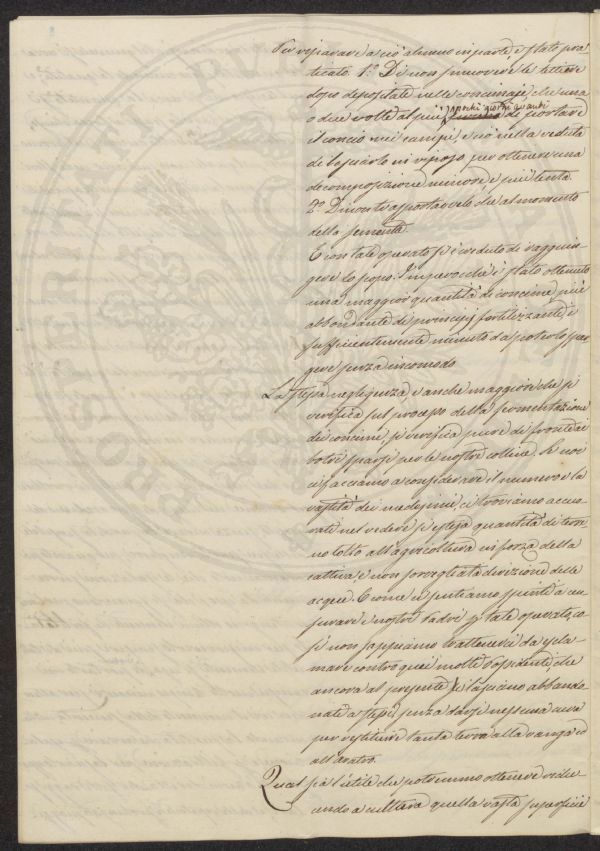 Per riparare a ciò almeno in parte, è stato pra
ticato. 1º Di non smuovere le lettiere
dopo depositate nelle concimaje, che una
o due volte al più, pochi giorni avanti di portare
il concio nei campi, e ciò nella veduta
di lasciarlo in riposo, per ottenere una
decomposizione minore, e più lenta
2º Di non trasportarvelo che al momento
della sementa.
E con tale operato si è creduto di raggiun
gere lo scopo. Imperocchè è stato ottenuto
una maggior quantità di concime, più
abbondante di principj fertilizzanti, e
sufficientemente minuto da poterlo spar
gere senza incomodo
La stessa negligenza, e anche maggiore che si
verifica sul processo della fermentazione
dei concimi, si verifica pure di fronte ai
botri sparsi per le nostre colline. Se noi
ci facciamo a considerare il numero e la
vastità dei medesimi, ci troviamo accuo
rati nel vedere sì estesa quantità di terre
no tolto all'agricoltura in forza della
cattiva, e non sorvegliata direzione delle
acque. E come ci sentiamo spinti a cen
surare i nostri Padri p. tale operato, co
sì non sappiamo trattenerci da escla
mare contro quei molti Possidenti, che
ancora al presente li lasciano abbando
nati a stessi, senza darsi nessuna cura
per restituire tanta terra alla vanga ed
all'aratro.
Qual sia l'utile che potremmo ottenere ridu
cendo a cultura quella vasta superficie